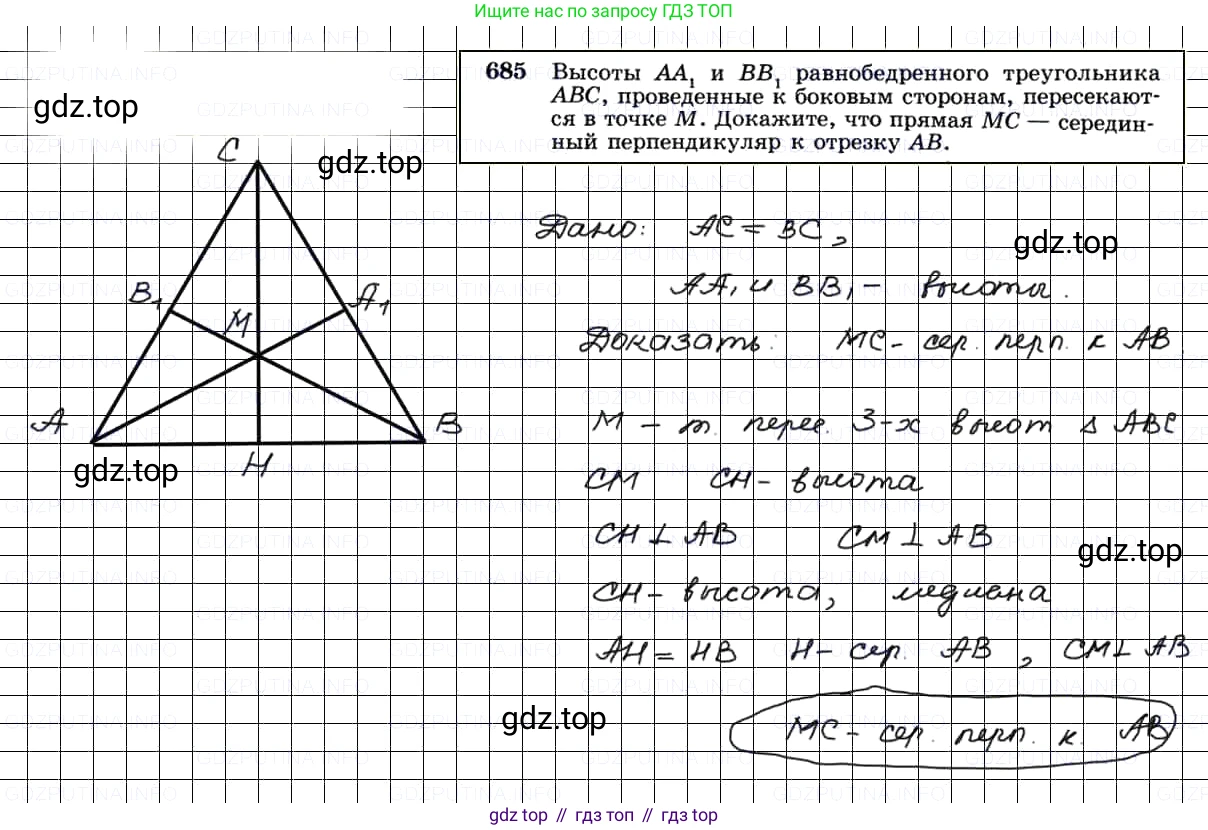 Ищите нас по запросу ГДЗ ТОП
685 Высоты AA₁ и BB₁ равнобедренного треугольника
ABC, проведенные к боковым сторонам, пересекают-
ся в точке M. Докажите, что прямая MC — середин-
ный перпендикуляр к отрезку AB.
gdz.top
gdz.top
C
B₁
A₁
M
A
B
H
gdz.top
Дано: AC = BC,
gdz.top
AA₁ и BB₁ - высоты.
Доказать: MC - сер. перп. к AB
M - т. перес. 3-х высот Δ ABC
CM CH - высота
CH ⊥ AB CM ⊥ AB
gdz.top
CH - высота, медиана
AH = HB H - сер. AB, CM ⊥ AB
gdz.top
MC - сер. перп. к. AB
gdz top // гдз топ // гдз top
GDZPUTINA.INFO